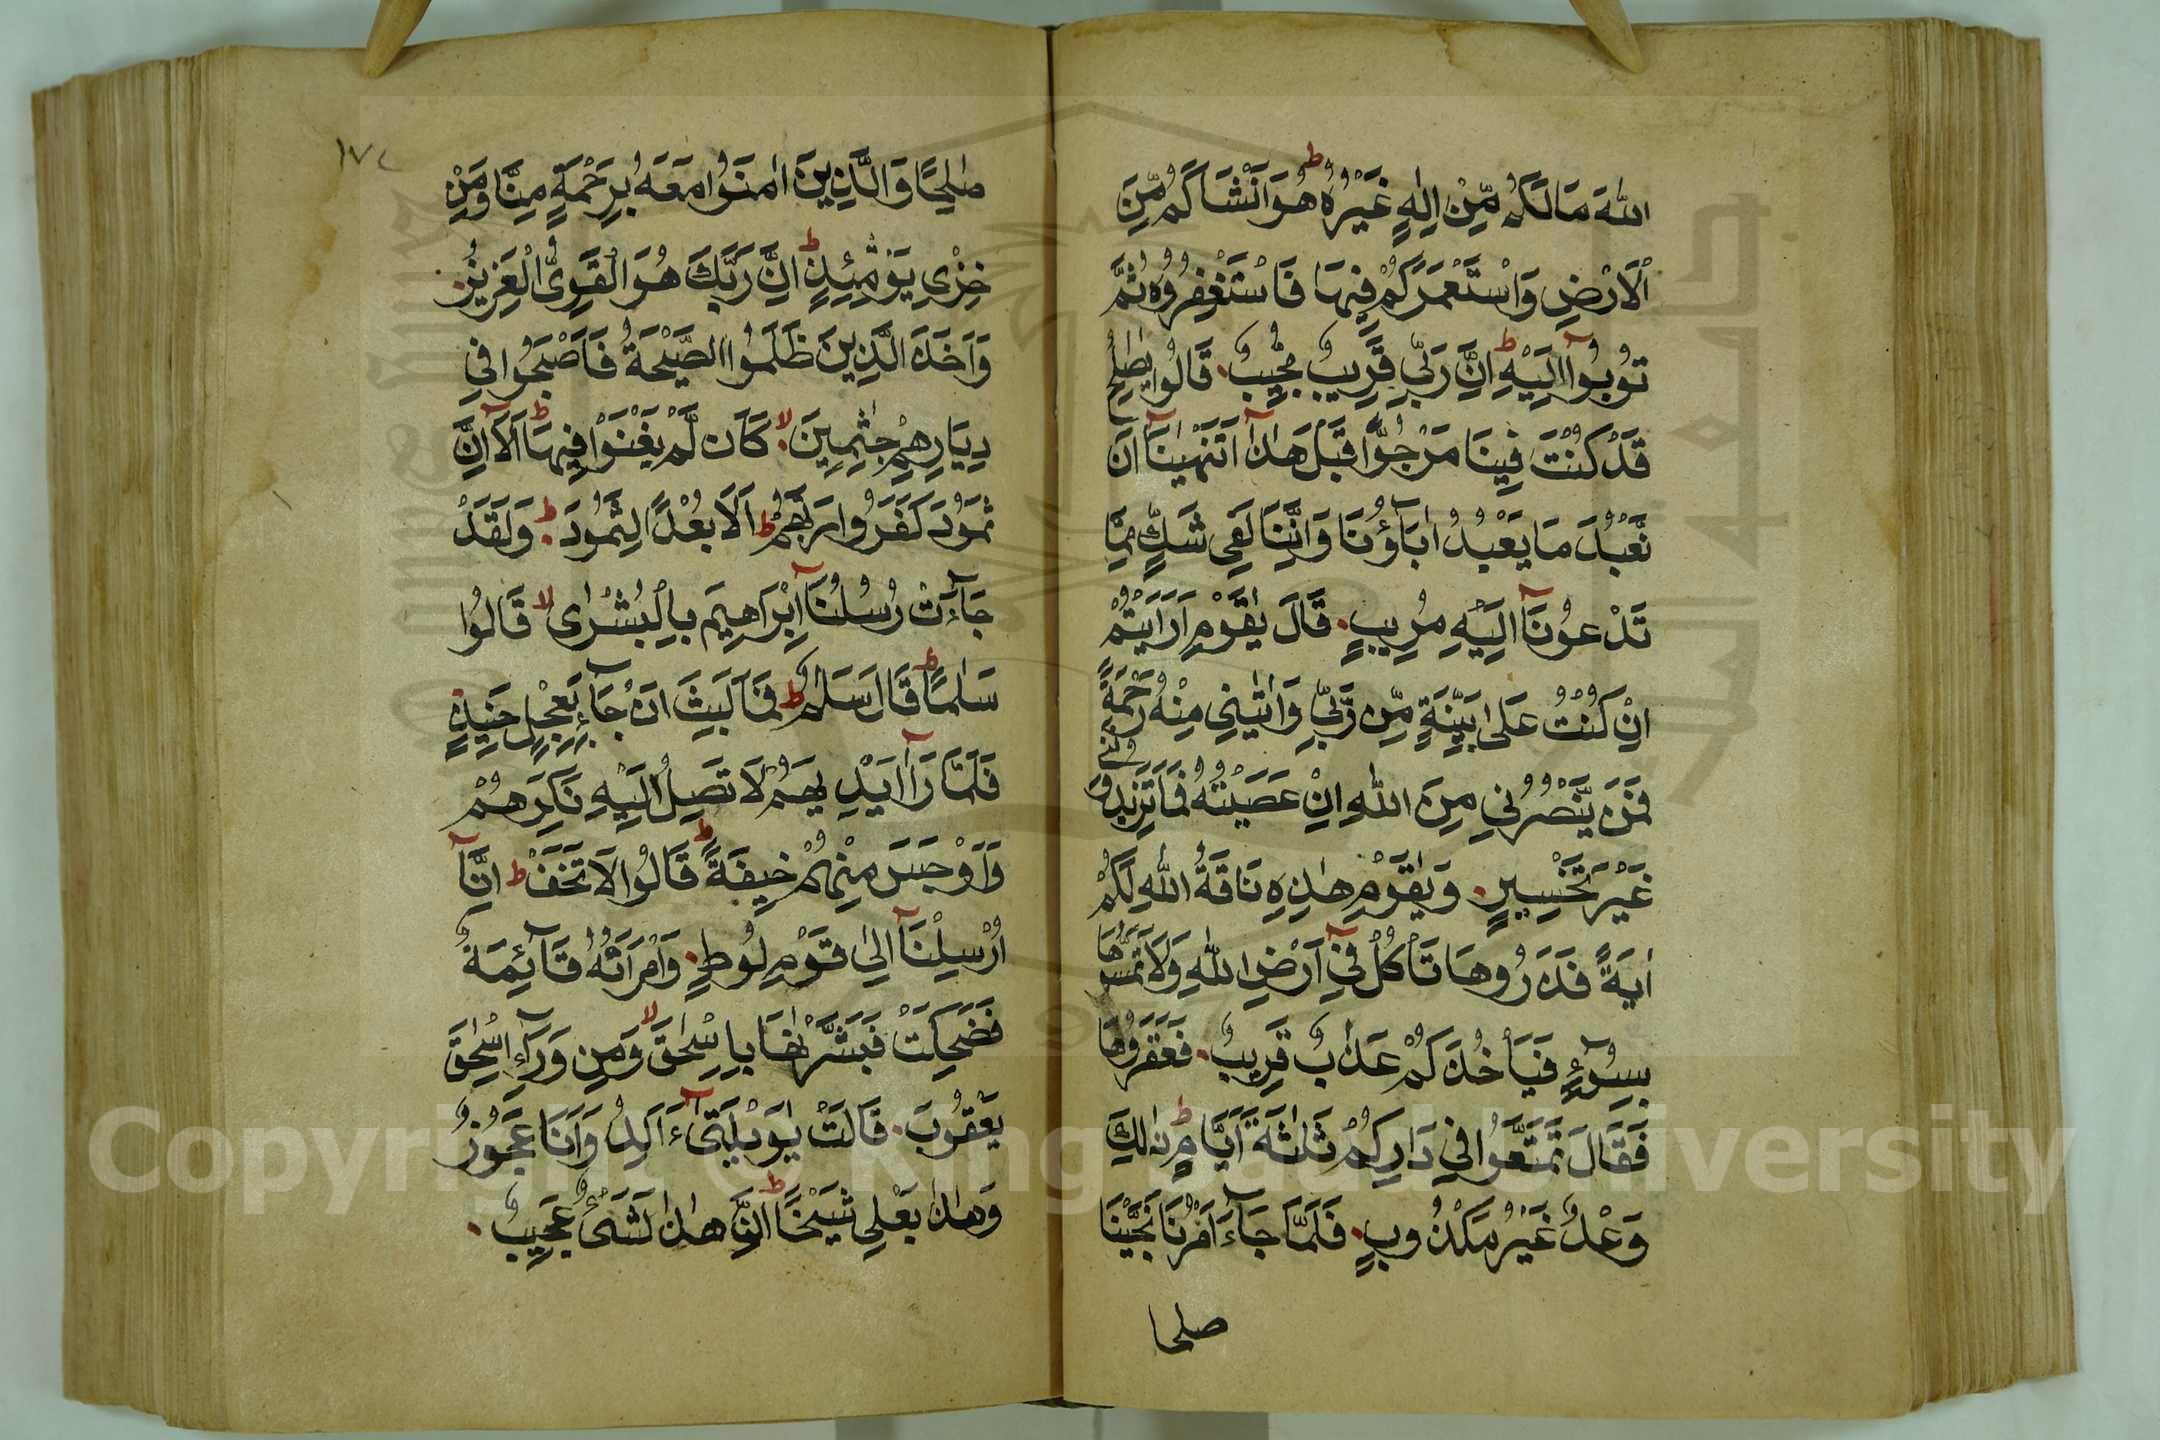 اللّٰهَ مَا لَكُمْ مِّنْ اِلٰهٍ غَيْرُهُ ط هُوَ اَنْشَاَكُمْ مِّنَ
الْاَرْضِ وَاسْتَعْمَرَكُمْ فِيْهَا فَاسْتَغْفِرُوهُ ثُمَّ
تُوْبُوْٓا اِلَيْهِ ط اِنَّ رَبِّي قَرِيبٌ مُجِيبٌ قَالُوا يٰصٰلِحُ
قَدْ كُنْتَ فِيْنَا مَرْجُوًّا قَبْلَ هٰذَآ اَتَنْهٰينَآ اَنْ
نَّعْبُدَ مَا يَعْبُدُ اٰبَآؤُنَا وَاِنَّنَا لَفِي شَكٍّ مِّمَّا
تَدْعُوْنَآ اِلَيْهِ مُرِيبٍ قَالَ يٰقَوْمِ اَرَاَيْتُمْ
اِنْ كُنْتُ عَلٰى بَيِّنَةٍ مِّنْ رَّبِّي وَاٰتٰينِي مِنْهُ رَحْمَةً
فَمَنْ يَّنْصُرُنِي مِنَ اللّٰهِ اِنْ عَصَيْتُهُ فَمَا تَزِيدُونَنِي
غَيْرَ تَخْسِيرٍ وَيٰقَوْمِ هٰذِهِ نَاقَةُ اللّٰهِ لَكُمْ
اٰيَةً فَذَرُوهَا تَأْكُلْ فِيٓ اَرْضِ اللّٰهِ وَلَا تَمَسُّوهَا
بِسُوٓءٍ فَيَأْخُذَكُمْ عَذَابٌ قَرِيبٌ فَعَقَرُوهَا
فَقَالَ تَمَتَّعُوا فِي دَارِكُمْ ثَلٰثَةَ اَيَّامٍ ط ذٰلِكَ
وَعْدٌ غَيْرُ مَكْذُوبٍ فَلَمَّا جَآءَ اَمْرُنَا نَجَّيْنَا
صلحا
١٧٤
صٰلِحًا وَالَّذِينَ اٰمَنُوا مَعَهُ بِرَحْمَةٍ مِنَّا وَمِنْ
خِزْيِ يَوْمِئِذٍ ط اِنَّ رَبَّكَ هُوَ الْقَوِيُّ الْعَزِيزُ
وَاَخَذَ الَّذِينَ ظَلَمُوا الصَّيْحَةُ فَاَصْبَحُوا فِي
دِيَارِهِمْ جٰثِمِينَ لا كَاَنْ لَّمْ يَغْنَوْا فِيهَا ط اَلَآ اِنَّ
ثَمُوْدَ كَفَرُوا رَبَّهُمْ ط اَلَا بُعْدًا لِثَمُودَ ط وَلَقَدْ
جَآءَتْ رُسُلُنَآ اِبْرَاهِيمَ بِالْبُشْرٰى لا قَالُوا
سَلٰمًا ط قَالَ سَلٰمٌ ط فَمَا لَبِثَ اَنْ جَآءَ بِعِجْلٍ حَنِيذٍ
فَلَمَّا رَآٰ اَيْدِيَهُمْ لَا تَصِلُ اِلَيْهِ نَكِرَهُمْ
وَاَوْجَسَ مِنْهُمْ خِيفَةً ط قَالُوا لَا تَخَفْ ط اِنَّآ
اُرْسِلْنَآ اِلٰى قَوْمِ لُوطٍ وَامْرَاَتُهُ قَآئِمَةٌ
فَضَحِكَتْ فَبَشَّرْنٰهَا بِاِسْحٰقَ لا وَمِنْ وَرَآءِ اِسْحٰقَ
يَعْقُوبَ قَالَتْ يٰوَيْلَتٰىٓ ءَاَلِدُ وَاَنَا عَجُوزٌ
وَهٰذَا بَعْلِي شَيْخًا ط اِنَّ هٰذَا لَشَيْءٌ عَجِيبٌ
Copyright © King Saud University